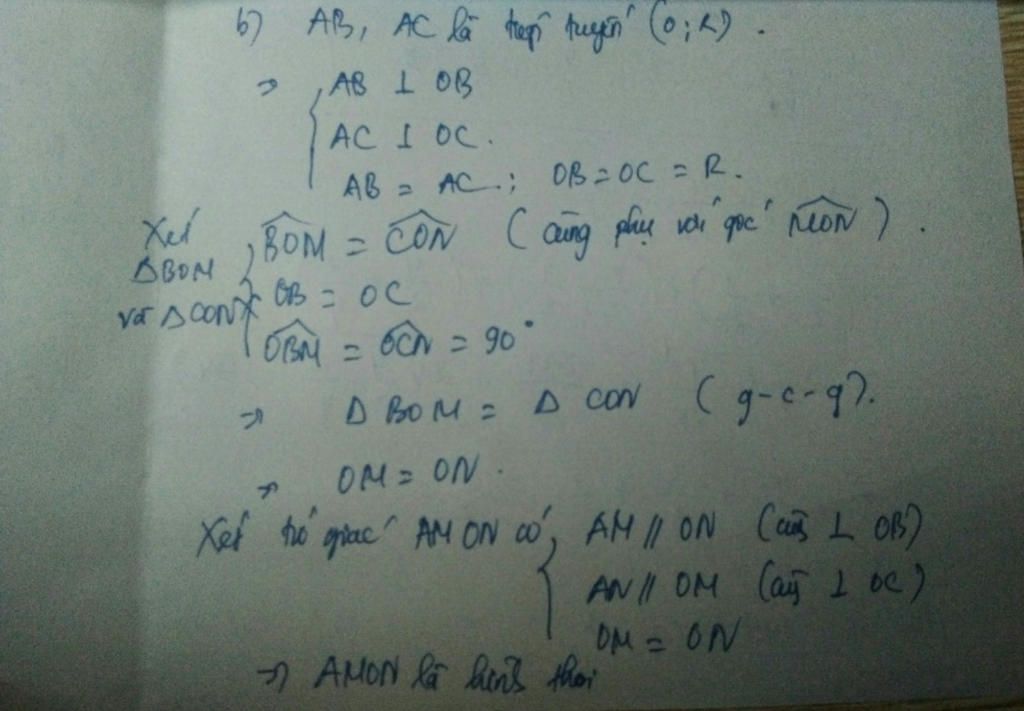 b) AB, AC là tiếp tuyến (O; R).
=> { AB ⊥ OB
AC ⊥ OC.
AB = AC; OB = OC = R.
Xét ΔBOM và ΔCON { \widehat{BOM} = \widehat{CON} (cùng phụ với góc \widehat{MON}).
OB = OC
\widehat{OBM} = \widehat{OCN} = 90°
=> Δ BOM = Δ CON (g-c-g).
=> OM = ON.
Xét tứ giác AMON có { AM // ON (cùg ⊥ OB)
AN // OM (cùg ⊥ OC)
OM = ON
=> AMON là hình thoi